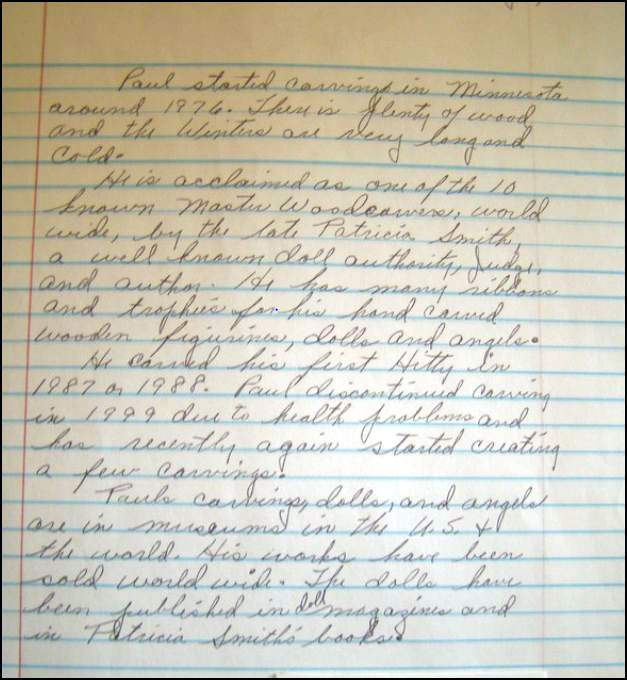 Paul started carvings in Minnesota
around 1976. There is plenty of wood
and the Winters are very long and
Cold.
He is acclaimed as one of the 10
known Master Woodcarvers, world
wide, by the late Patricia Smith,
a well known doll authority, Judge,
and author. He has many ribbons
and trophies for his hand carved
wooden figurines, dolls and angels.
He carved his first Hitty in
1987 or 1988. Paul discontinued carving
in 1999 due to health problems and
has recently again started creating
a few carvings.
Pauls carvings, dolls, and angels
are in museums in the U.S. &
the world. His works have been
sold world wide. The dolls have
been published in doll magazines and
in Patricia Smith's books.